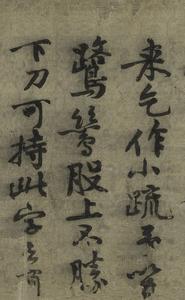 来乞作小疏
鷺鷥股上不勝
下刀可持此字